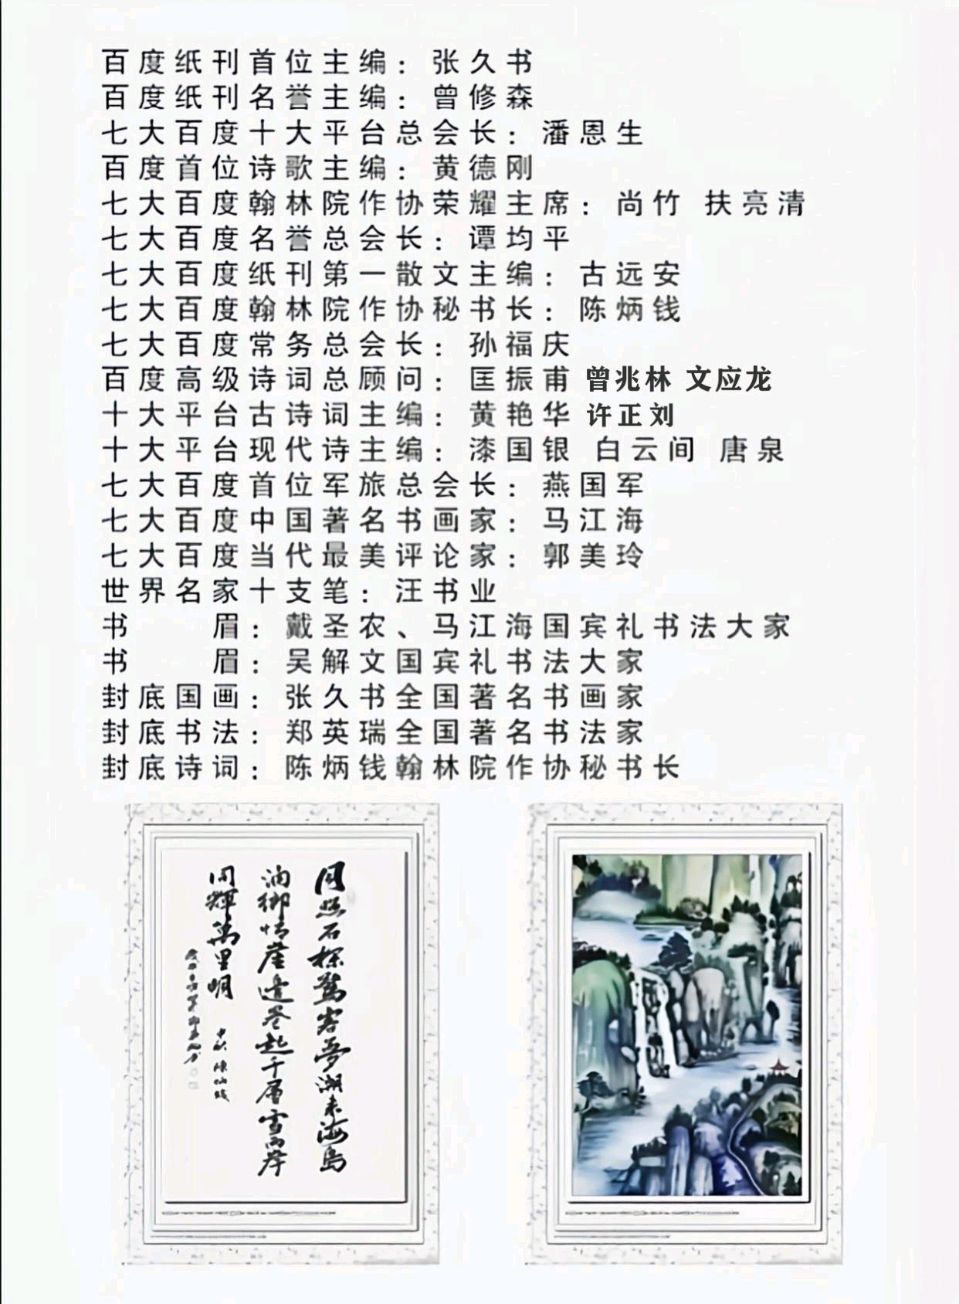 百度纸刊首位主编：张久书
百度纸刊名誉主编：曾修森
七大百度十大平台总会长：潘恩生
百度首位诗歌主编：黄德刚
七大百度翰林院作协荣耀主席：尚竹 扶亮清
七大百度名誉总会长：谭均平
七大百度纸刊第一散文主编：古远安
七大百度翰林院作协秘书长：陈炳钱
七大百度常务总会长：孙福庆
百度高级诗词总顾问：匡振甫 曾兆林 文应龙
十大平台古诗词主编：黄艳华 许正刘
十大平台现代诗主编：漆国银 白云间 唐泉
七大百度首位军旅总会长：燕国军
七大百度中国著名书画家：马江海
七大百度当代最美评论家：郭美玲
世界名家十支笔：汪书业
书 眉：戴圣农、马江海国宾礼书法大家
书 眉：吴解文国宾礼书法大家
封底国画：张久书全国著名书画家
封底书法：郑英瑞全国著名书法家
封底诗词：陈炳钱翰林院作协秘书长
客夢潮来海島
起千層雪两岸
同輝萬里明
中秋 陳炳錢